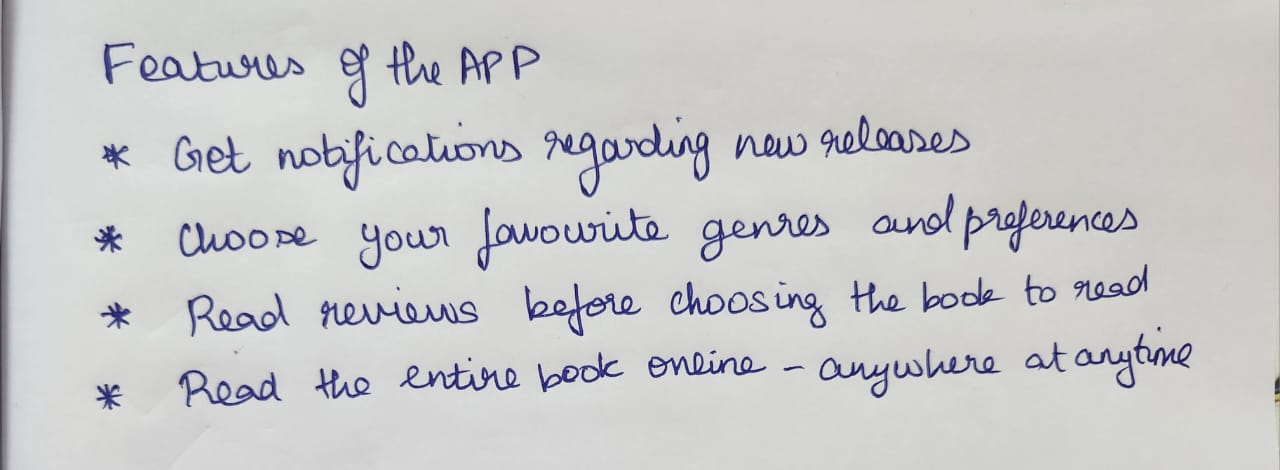 Features of the APP
* Get notifications regarding new releases
* Choose your favourite genres and preferences
* Read reviews before choosing the book to read
* Read the entire book online - anywhere at anytime